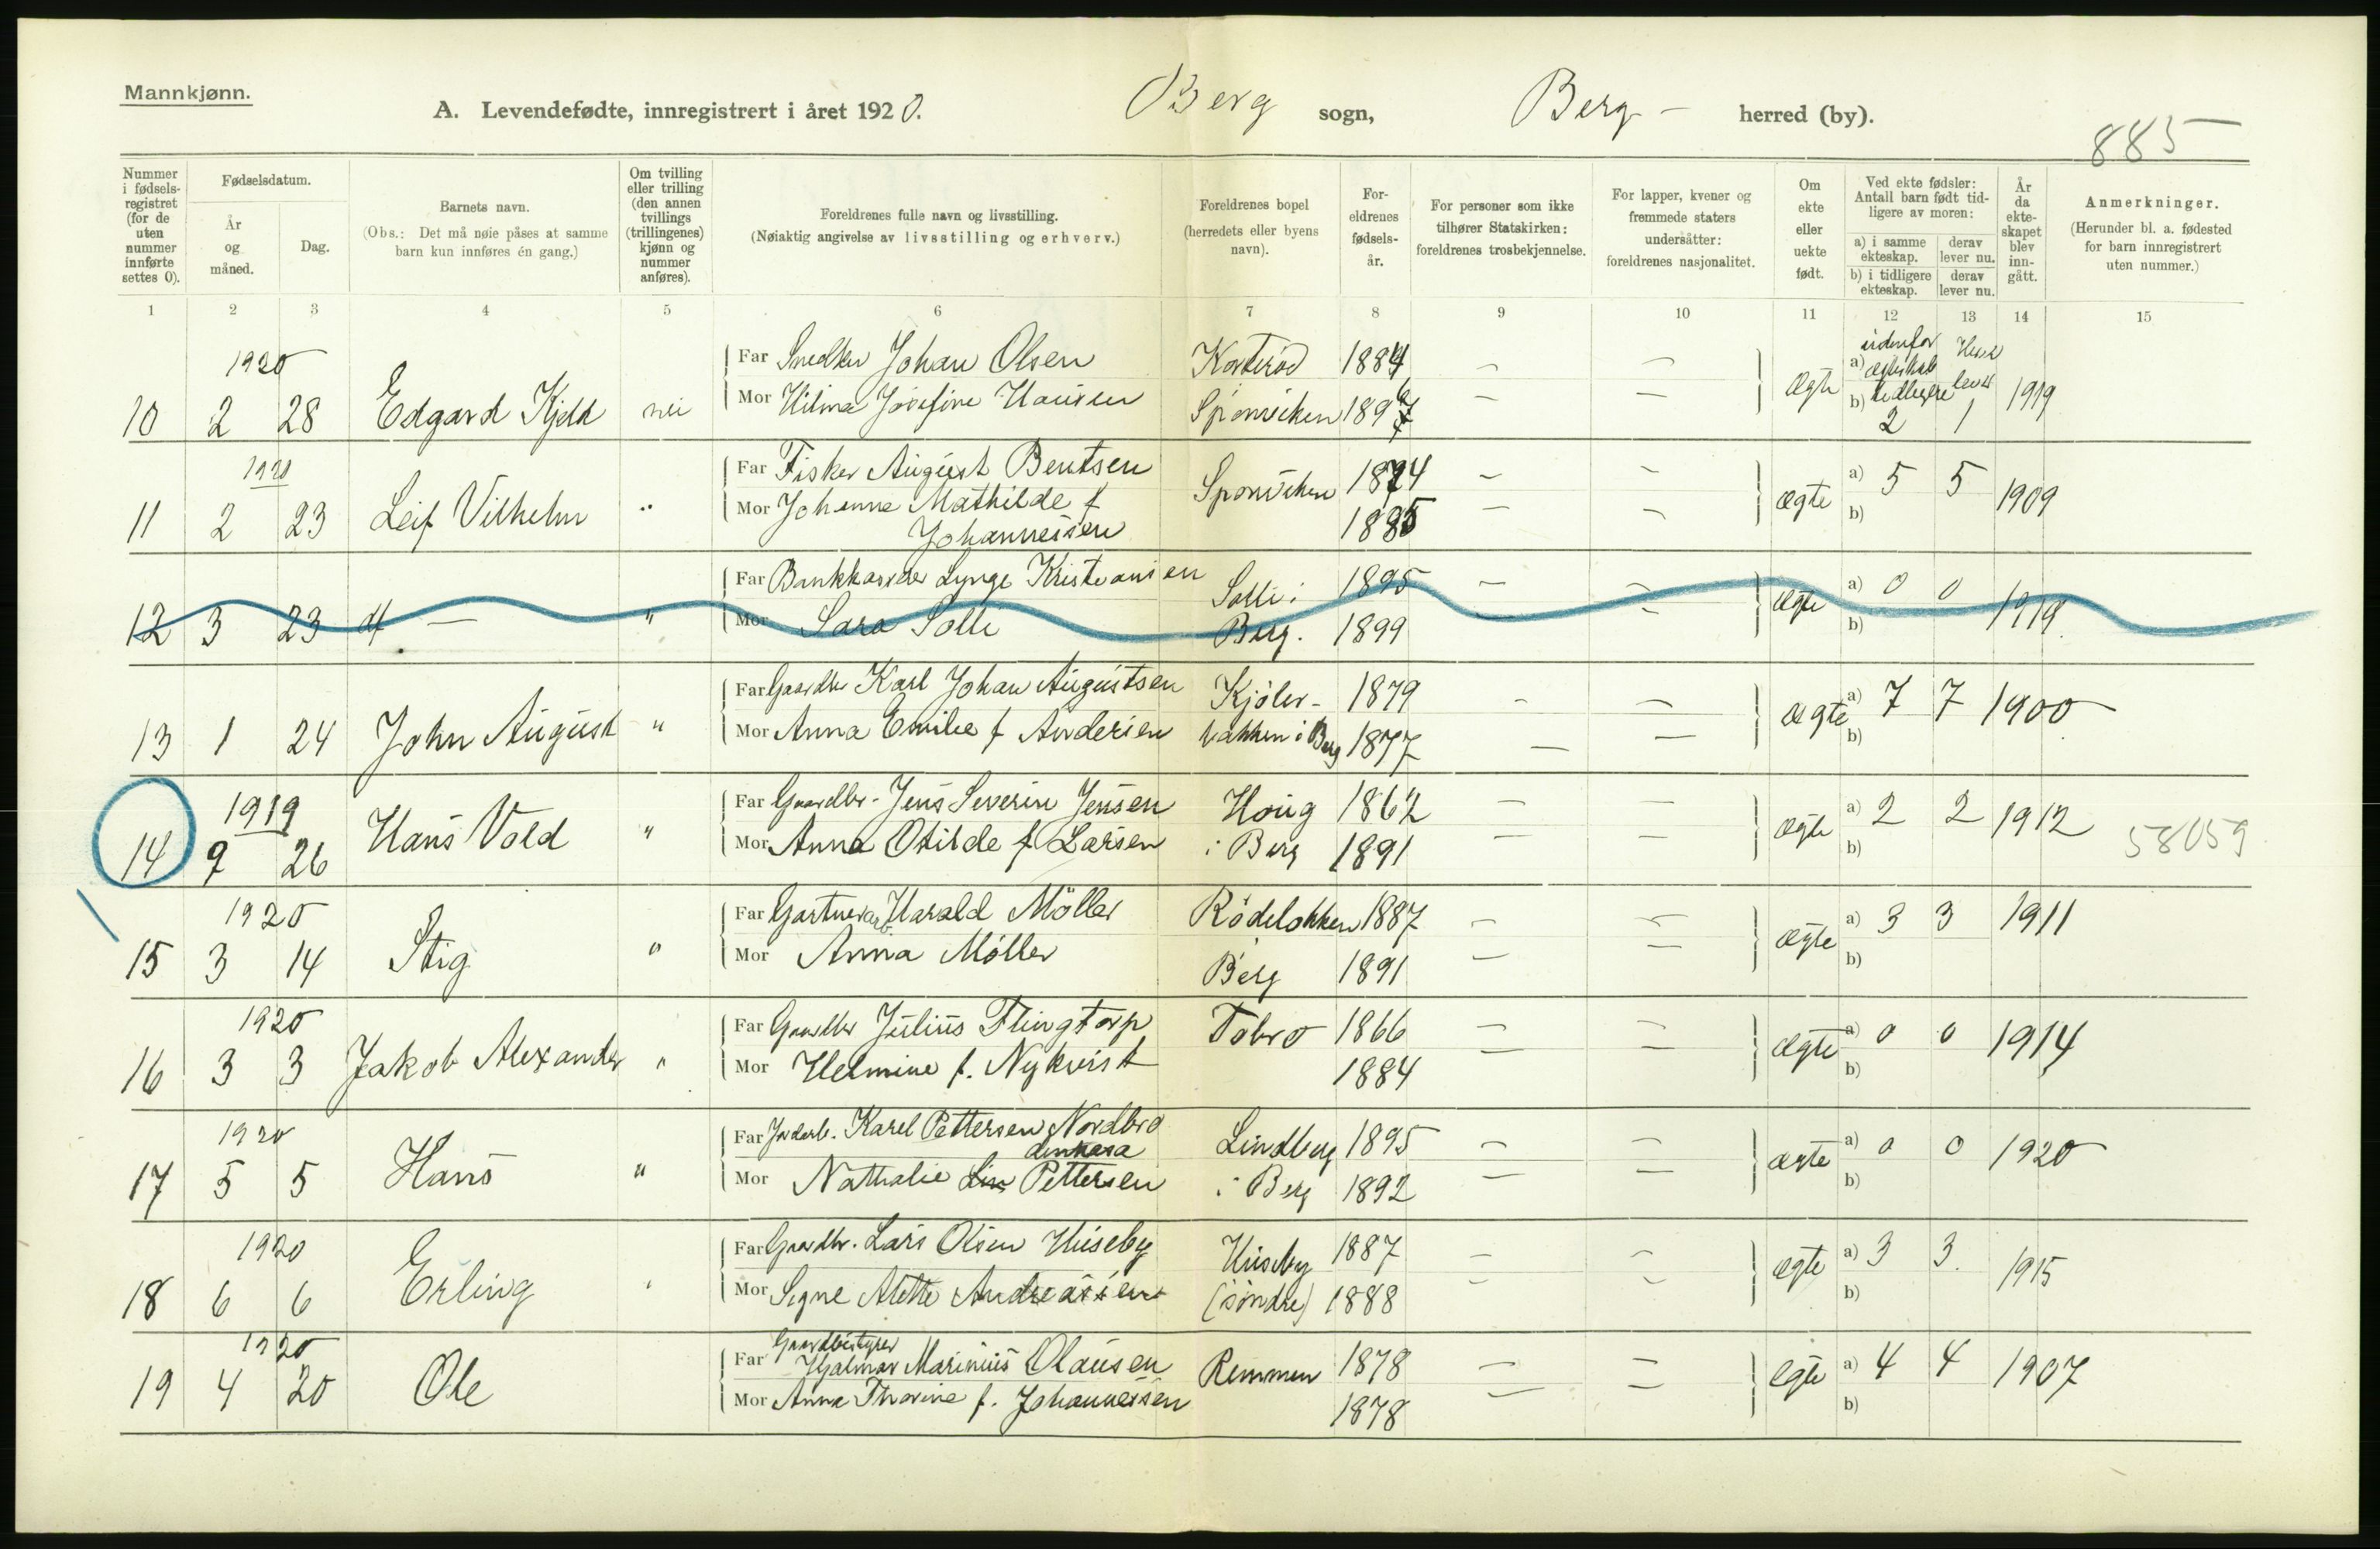 Mannkjønn.
A. Levendefødte, innregistrert i året 1920. Berg sogn, Berg herred (by).
885
Nummer i fødselsregistret (for de uten nummer innførte settes 0).
Fødselsdatum.
År og måned.
Dag.
Barnets navn.
(Obs.: Det må nøie påses at samme barn kun innføres én gang.)
Om tvilling eller trilling (den annen tvillings (trillingenes) kjønn og nummer anføres).
Foreldrenes fulle navn og livsstilling.
(Nøiaktig angivelse av livsstilling og erhverv.)
Foreldrenes bopel (herredets eller byens navn).
Foreldrenes fødselsår.
For personer som ikke tilhører Statskirken: foreldrenes trosbekjennelse.
For lapper, kvener og fremmede staters undersåtter: foreldrenes nasjonalitet.
Om ekte eller uekte født.
Ved ekte fødsler: Antall barn født tidligere av moren:
a) i samme ekteskap. derav lever nu.
b) i tidligere ekteskap. derav lever nu.
År da ekteskapet blev inngått.
Anmerkninger.
(Herunder bl. a. fødested for barn innregistrert uten nummer.)
1 2 3 4 5 6 7 8 9 10 11 12 13 14 15
1920
Far Johan Olsen 1884
10 2 28 Edgard nei
Mor Hilma Josefine Hansen Sponviken
Ægte a) b) 2 1 1919
1920
Far Fisker August Bentsen Sponviken 1874
11 2 23 Leif Vilhelm "
Mor Johanne Mathilde f Johannessen 1885
ægte a) 5 5 b) 1909
Far Bankkasserer Lynge Kristiansen Solli i 1895
12 3 23 df — "
Mor Sara Solli Berg. 1899
ægte a) 0 0 b) 1919
Far Gaardbr Karl Johan Augustsen Kjøler- 1879
13 1 24 John August "
Mor Anna Emilie f Andersen bakken i Berg 1877
ægte a) 7 7 b) 1900
1919
Far Gaardbr. Jens Severin Jensen Houg 1862
14 9 26 Hans Vold "
Mor Anna Otilde f Larsen i Berg 1891
ægte a) 2 2 b) 1912 58059
1920
Far Gartnerarb Harald Möller Rödeløkken 1887
15 3 14 Stig "
Mor Anna Möller Berg 1891
ægte a) 3 3 b) 1911
1920
Far Gaardbr Julius Flingtorp Tobro 1866
16 3 3 Jakob Alexander "
Mor Helmine f. Nykvist 1884
ægte a) 0 0 b) 1914
1920
Far Jordarb. Karel Pettersen Nordbro Lindberg 1895
17 5 5 Hans "
Mor Nathalie Pettersen i Berg 1892
ægte a) 0 0 b) 1920
1920
Far Gaardbr. Lars Olsen Huseby Huseby 1887
18 6 6 Erling "
Mor Signe Alette Andreassen (söndre) 1888
ægte a) 3 3. b) 1915
1920
Far Gaardbestyrer Hjalmar Marinius Olausen Remmen 1878
19 4 20 Ole
Mor Anna Thorine f. Johannessen 1878
Ægte a) 4 4 b) 1907